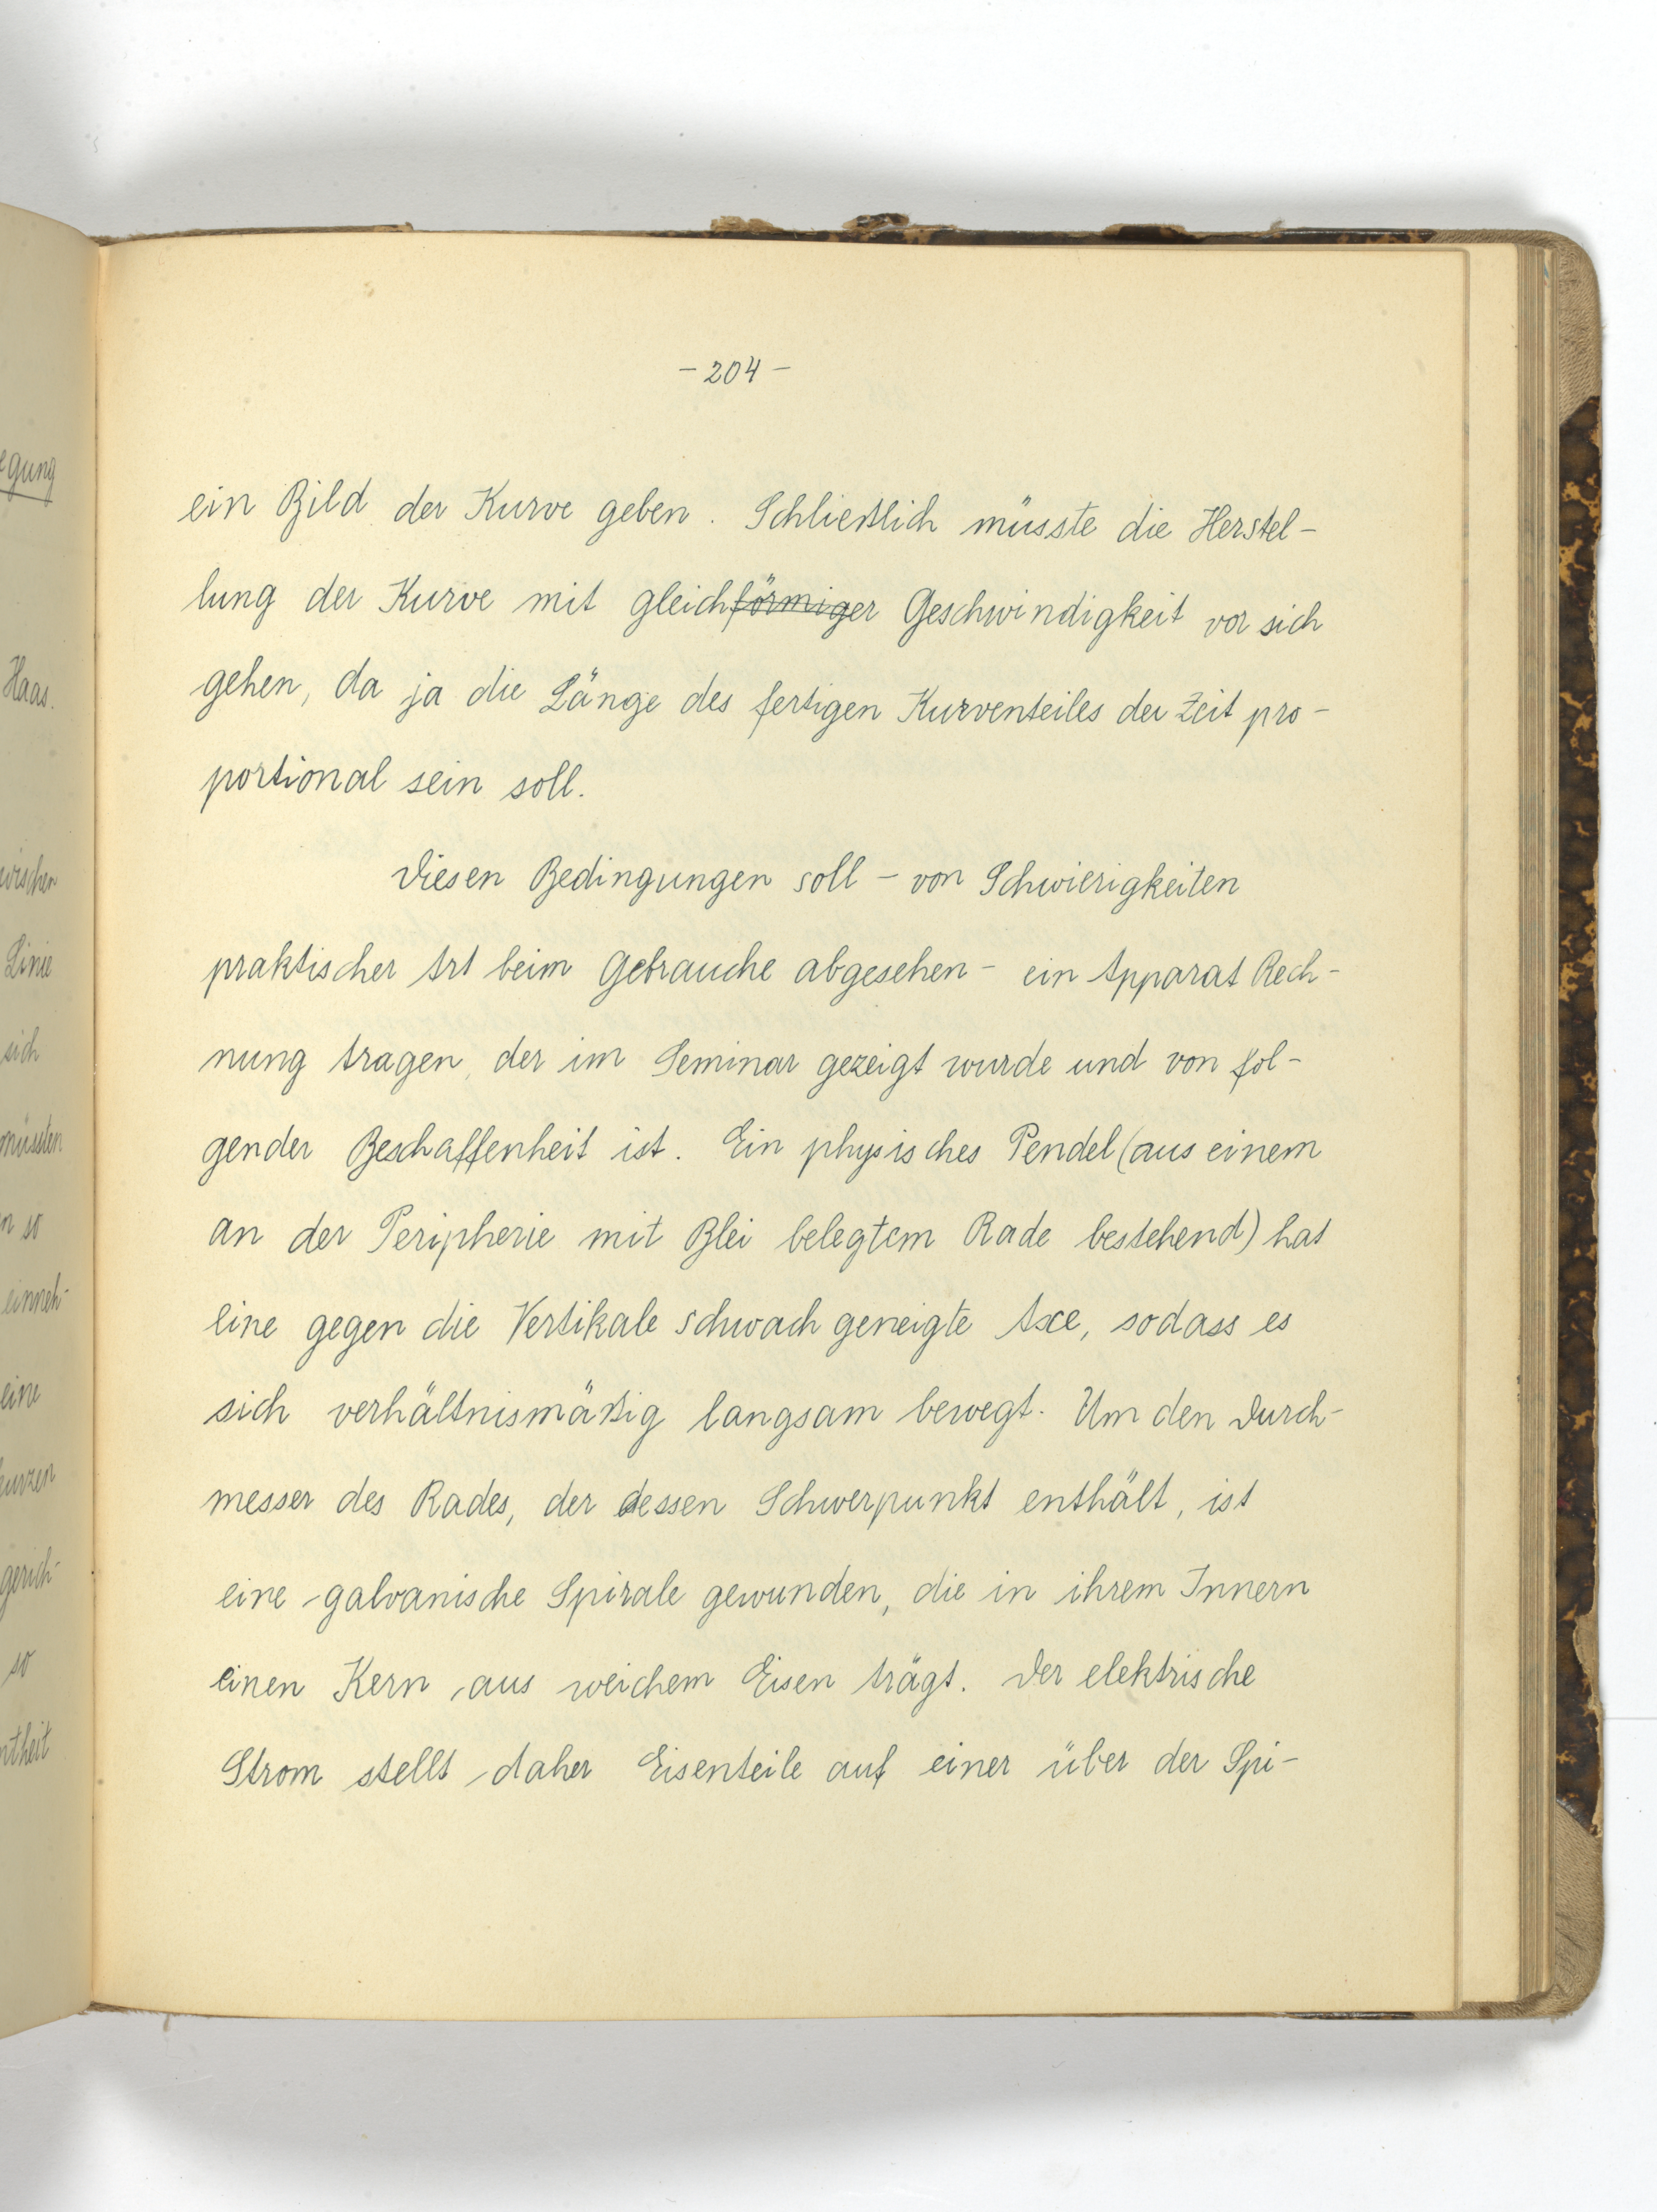 - 204 -
ein Bild der Kurve geben. Schließlich müsste die Herstel-
lung der Kurve mit gleichförmiger Geschwindigkeit vor sich
gehen, da ja die Länge des fertigen Kurventeiles der Zeit pro-
portional sein soll.
Diesen Bedingungen soll - von Schwierigkeiten
praktischer Art beim Gebrauche abgesehen - ein Apparat Rech-
nung tragen, der im Seminar gezeigt wurde und von fol-
gender Beschaffenheit ist. Ein physisches Pendel (aus einem
an der Peripherie mit Blei belegtem Rade bestehend) hat
eine gegen die Vertikale schwach geneigte Axe, sodass es
sich verhältnismäßig langsam bewegt. Um den Durch-
messer des Rades, der dessen Schwerpunkt enthält, ist
eine galvanische Spirale gewunden, die in ihrem Innern
einen Kern aus weichem Eisen trägt. Der elektrische
Strom stellt daher Eisenteile auf einer über der Spi-
egung
Haas.
Linie
sich
müssten
so
einneh-
eine
gerich-
so